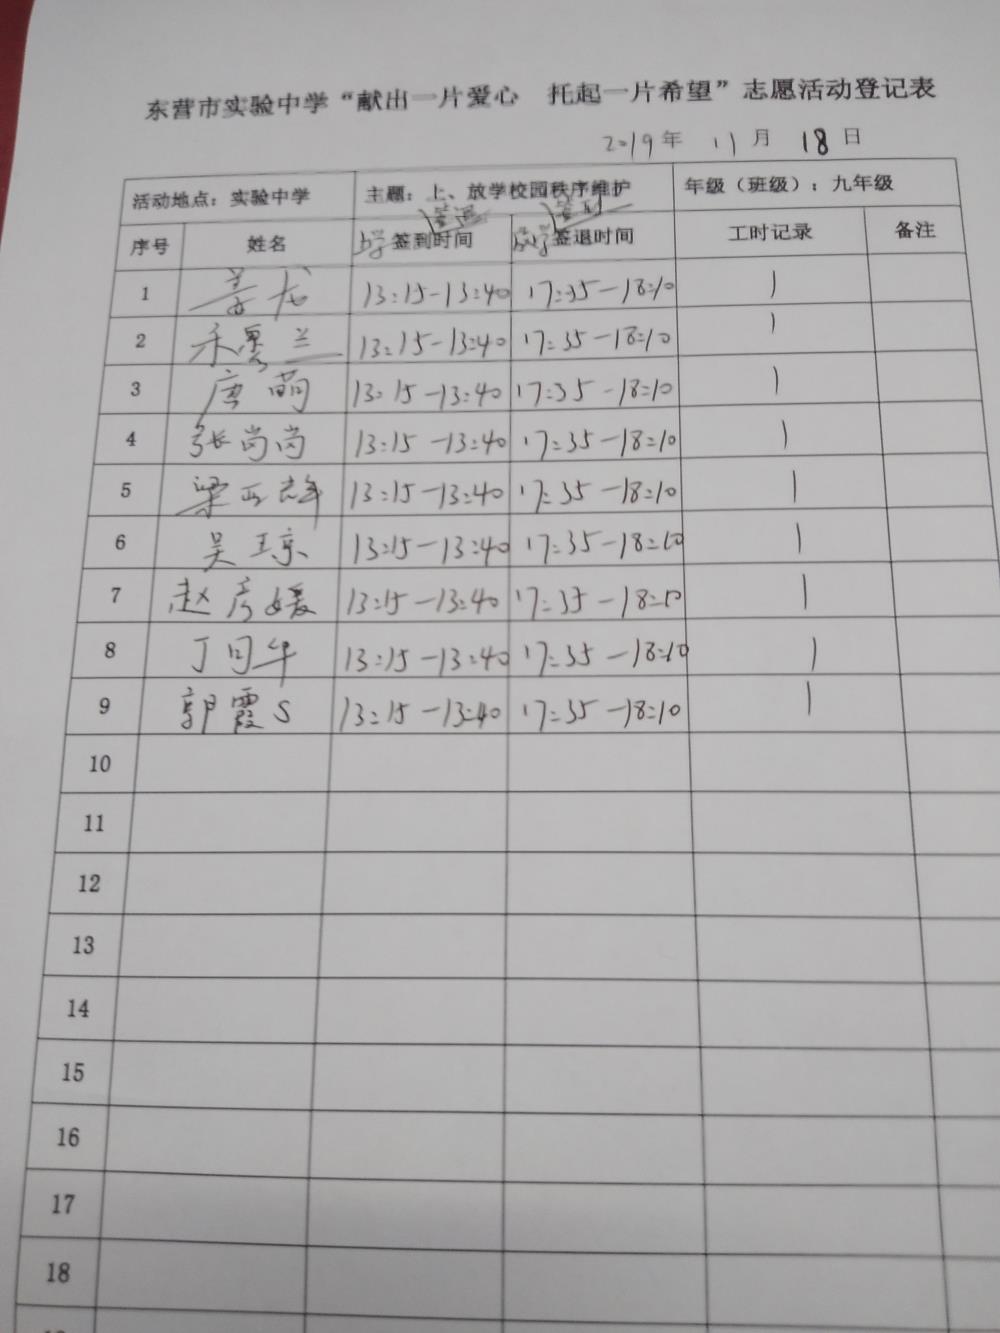 东营市实验中学“献出一片爱心 托起一片希望”志愿活动登记表
2019年 11月 18日
活动地点：实验中学 主题：上、放学校园秩序维护 年级（班级）：九年级
签退 签到
序号 姓名 上学签到时间 放学签退时间 工时记录 备注
1 姜龙 13:15-13:40 17:35-18:10 1
2 13:15-13:40 17:35-18:10 1
3 唐萌 13:15-13:40 17:35-18:10 1
4 张尚尚 13:15-13:40 17:35-18:10 1
5 梁 13:15-13:40 17:35-18:10 1
6 吴玉京 13:15-13:40 17:35-18:10 1
7 赵彦媛 13:15-13:40 17:35-18:10 1
8 丁同华 13:15-13:40 17:35-18:10 1
9 郭霞S 13:15-13:40 17:35-18:10 1
10
11
12
13
14
15
16
17
18